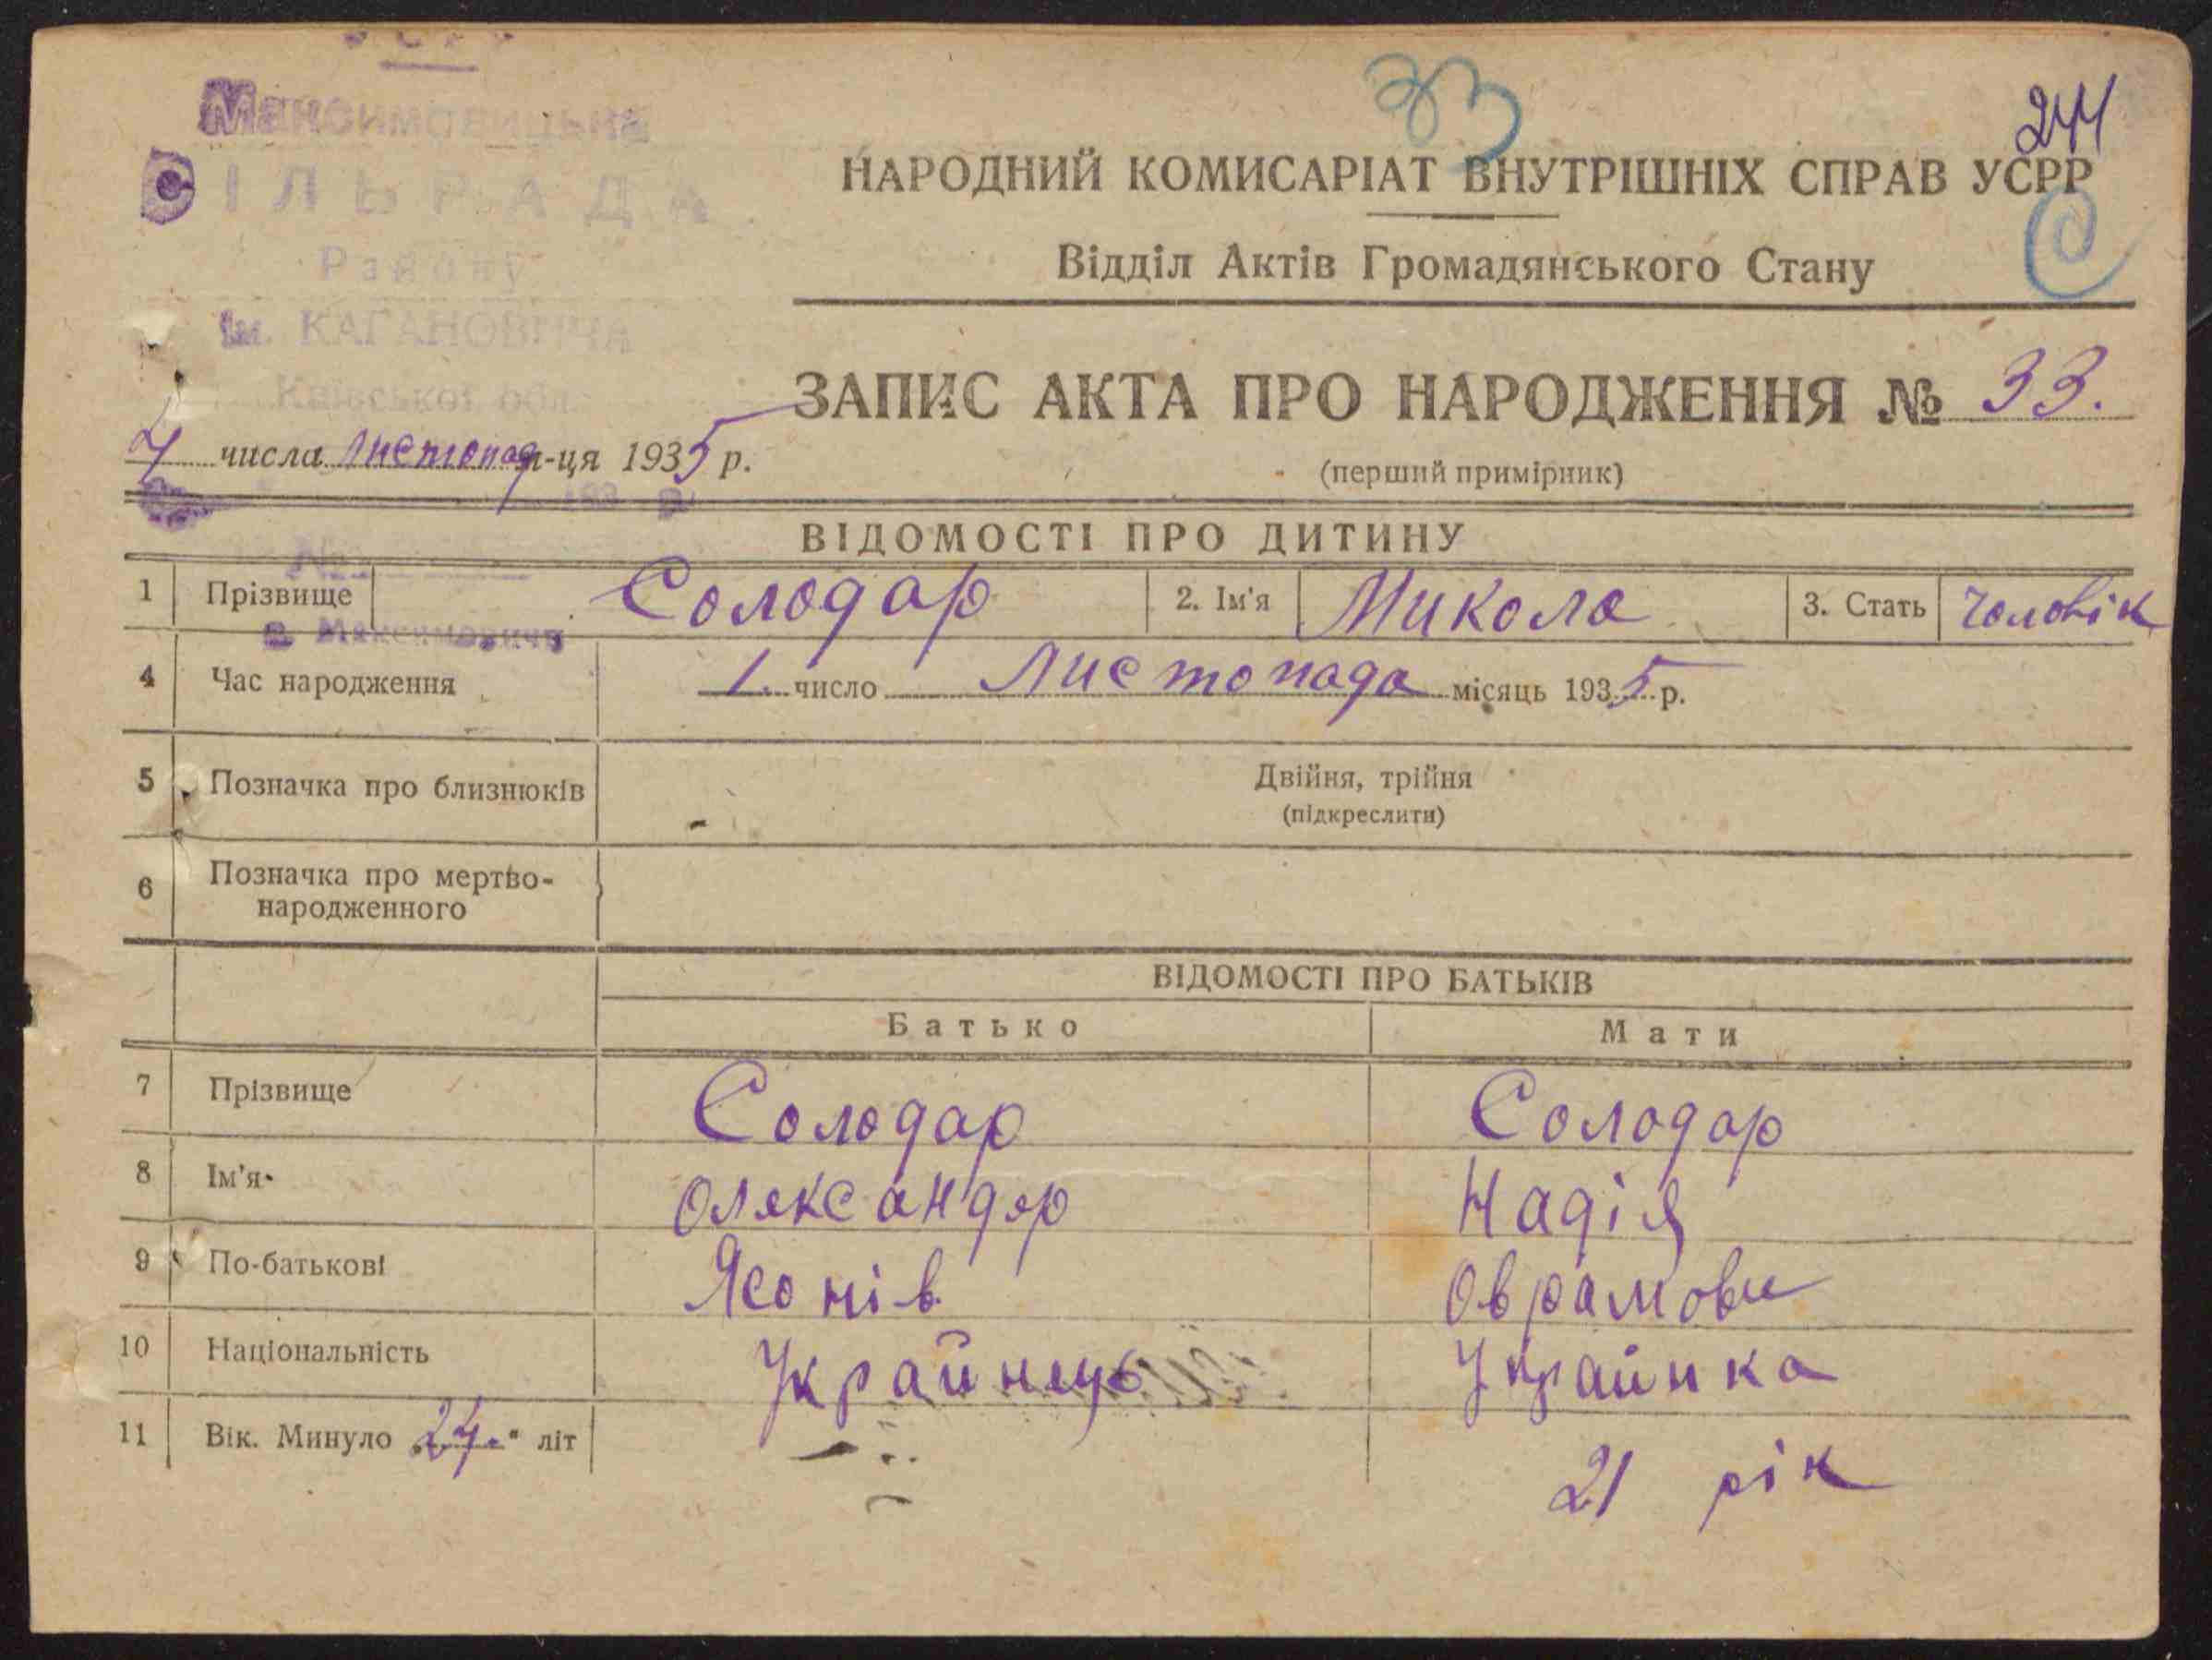 УСРР
Максимовицька
СІЛЬРАДА
Району
Ім. КАГАНОВИЧА
Київської обл.
33
244
НАРОДНИЙ КОМИСАРІАТ ВНУТРІШНІХ СПРАВ УСРР
Відділ Актів Громадянського Стану
ЗАПИС АКТА ПРО НАРОДЖЕННЯ № 33.
числа листопад м-ця 1935 р.
(перший примірник)
193 р.
№
с. Максимовичи
ВІДОМОСТІ ПРО ДИТИНУ
1 Прізвище Солодар 2. Ім'я Микола 3. Стать Чоловік
4 Час народження 1. число Листопада місяць 1935 р.
5 Позначка про близнюків Двійня, трійня
(підкреслити)
6 Позначка про мертво-
народженного
ВІДОМОСТІ ПРО БАТЬКІВ
Батько Мати
7 Прізвище Солодар Солодар
8 Ім'я Олександер Надія
9 По-батькові Ясонів Оврамовн
10 Національність Украйнець Украйнка
11 Вік. Минуло 24 літ 21 рік